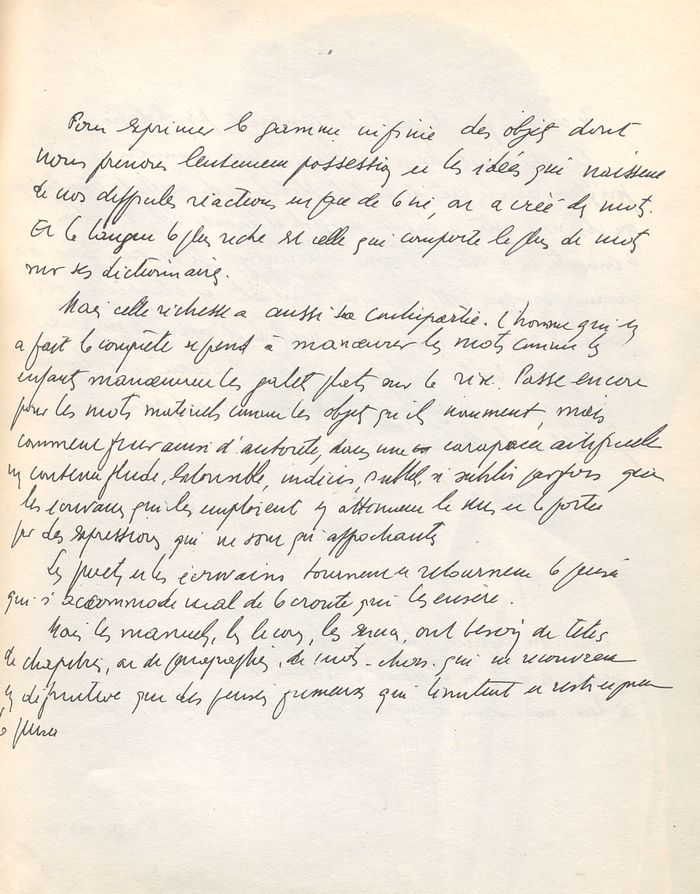 Pour exprimer la gamme infinie des objets dont
nous prenons lentement possession et les idées qui naissent
de nos difficiles réactions en face de la vie, on a créé des mots.
Et la langue la plus riche est celle qui comporte le plus de mots
sur ses dictionnaires.
Mais cette richesse a aussi sa contrepartie. L'homme qui en
a fait la conquête se prend à manœuvrer les mots comme les
enfants manœuvrent les galets plats sur la rive. Passe encore
pour les mots matériels comme les objets qu'ils nomment, mais
comment fixer ainsi d'autorité, dans une carapace artificielle
un contenu fluide, extensible, indécis, subtil, si subtil parfois que
les écrivains qui les emploient en atténuent le sens et la portée
par des expressions qui ne sont qu'approchants
Les poètes et les écrivains tournent et retournent la pensée
qui s'accommode mal de la croute qui les enserre.
Mais les manuels, les leçons, les ont besoin de têtes
de chapitres, ou de paragraphes, de mots-chocs qui ne recouvrent
en définitive que des pensées qui limitent et restreignent
la pensée